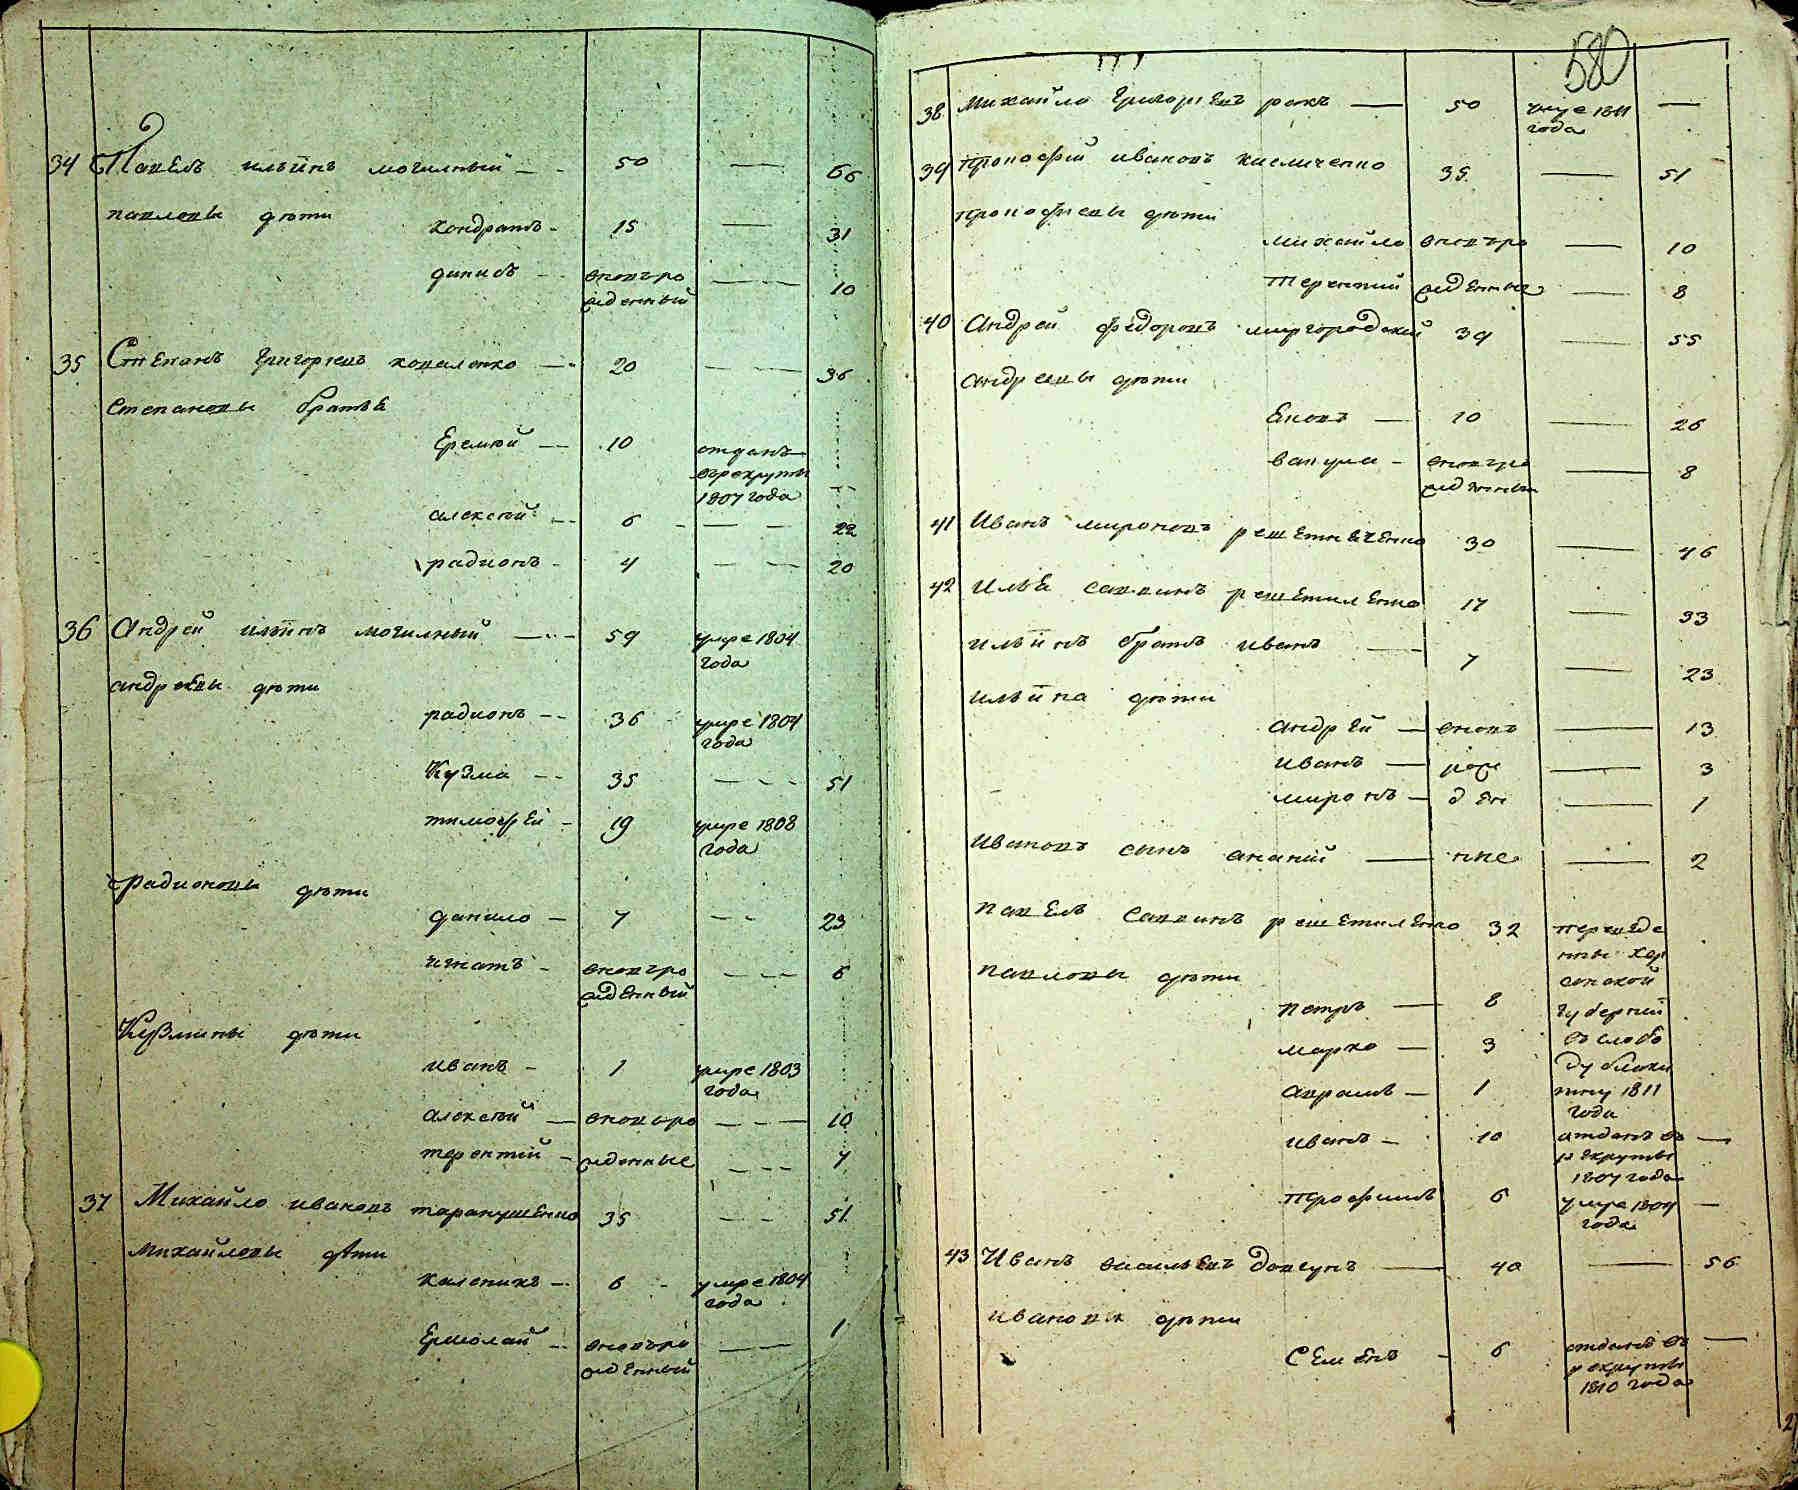 34 Павелъ ильинъ могилный — 50 — 66
павловы дѣти
кондратъ - 15 — 31
данило - вновьро — 10
жденный
35 Степанъ григориевъ коваленко — 20 — 36
степановы братья
Еремей — 10 отданъ
врекруты
1807 года
алексѣй — 6 — 22
радионъ - 4 — 20
36 андрей ильинъ могилный — 59 умре 1804
года
андреевы дѣти
радионъ - 36 умре 1804
года
Кузма - 35 — 51
тимофей - 19 умре 1808
года
радионовы дѣти
данило - 7 - 23
игнатъ - вновьро — 6
жденный
Кузмины дѣти
иванъ - 1 умре 1803
года
алексѣй — вновьро — 10
терентий - жденные — 7
37 Михайло ивановъ таранушенко 35 — 51
михайловы дѣти
каленикъ - 6 - умре 1804
года
Ермолай - вновьро — 1
жденный
580
38 михайло григориевъ ракъ — 50 умре 1811 —
года
39 прокофий ивановъ кисличенко 35 — 51
прокофиевы дѣти
михайло вновьро — 10
терентий жденные — 8
40 андрей федоровъ миргородский 39 — 55
андреевы дѣти
Яковъ — 10 — 26
вакула - вновьро — 8
жденный
41 Иванъ мироновъ решетниченко 30 — 46
42 илья саввинъ решетиленко 17 — 33
ильинъ братъ иванъ — 7 — 23
ильина дѣти
андрей — вновъ — 13
иванъ — рож — 3
миронъ - ден — 1
ивановъ сынъ ананий — ние — 2
павелъ саввинъ решетиленко 32 переведе
нны хер
павловы дѣти сонской
петръ — 8 губерний
марко — 3 въ слобо
ду
авраамъ — 1 1811
года
иванъ - 10 отданъ въ —
рекруты
1807 года
трофимъ 6 умре 1804 —
года
43 Иванъ васильевъ довгунъ — 40 — 56
ивановы дѣти
Семенъ - 6 отданъ въ —
рекруты
1810 года